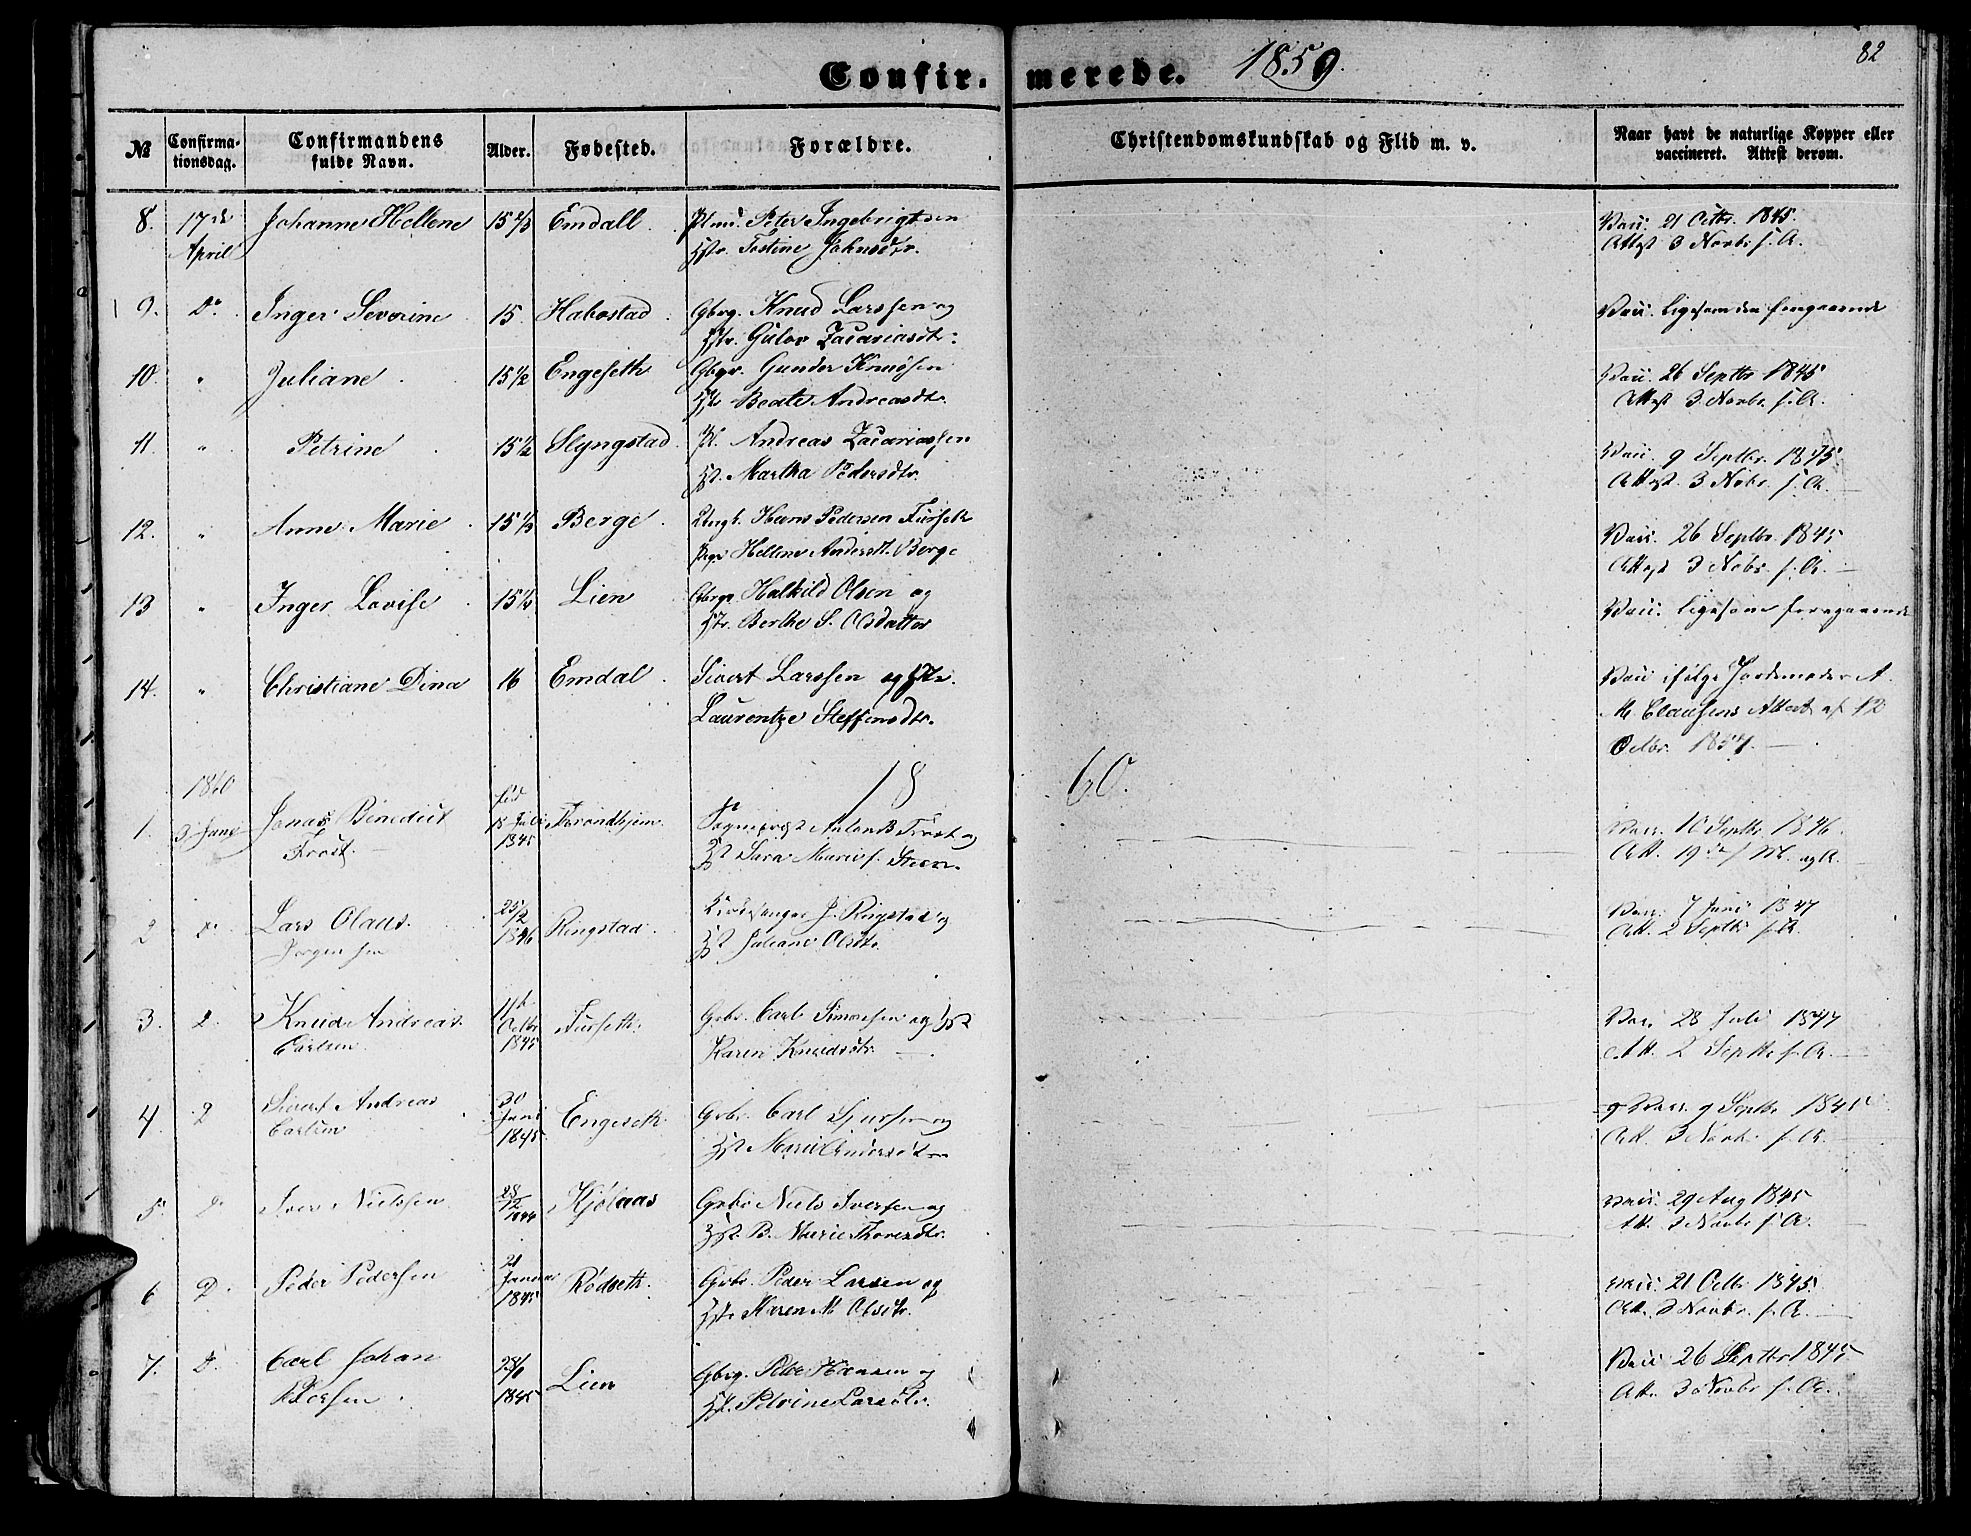 82
Confir- merede. 1859.
№ Confirma-tionsdag. Confirmandens fulde Navn. Alder. Fødested. Forældre. Christendomskundskab og Flid m. v. Naar havt de naturlige Kopper eller vaccineret. Attest derom.
8. 17de April Johanne Hellene 15 2/3 Emdall. Peter Ingebrigtsen Vacc. 21 Octbr. 1845.
Hstr. Jostine Johnsdtr. Attest 3 Novbr. s. A.
9. Do. Inger Severine 15. Habostad. Gbrg. Knud Larssen og Vacc. ligesom den foregaaende
Hstr. Gulov Zacariasdtr.
10. " Juliane 15 1/2 Engeseth Gbgr. Gunder Knudsen Vacc. 26 Septbr 1845
Hstr Beate Andreasdtr. Attest 3 Novbr. s. A.
11. " Petrine 15 1/2 Slyngstad. Pl. Andreas Zacariassen Vacc. 9 Septbr. 1845
Hst. Martha Pedersdtr. Attest. 3 Nobr. s. A.
12. " Anne Marie 15 1/3 Berge. Ungk. Hans Pedersen Furseth Vacc. 26 Septbr. 1845
Pige Hellene Andersdt. Berge Attest 3 Nobr. s. A.
13 " Inger Lovise 15 1/3 Lien Gbrgr Halkild Olsen og Vacc. ligesom foregaaende
Hstr. Berthe S. Olsdatter
14. " Christiane Dina 16 Emdal. Sivert Larssen og Hstr. Vacc ifølge Jordemoder A.
Laurentze Steffensdtr. M. Clausens Attest af 12
Octbr. 1857.
1860 18 60.
1. 3 Juni Jonas Benedict Frost. fød 18 Juli 1845 Trondhjem. Sogneprest Frost og Vacc. 10 Septbr. 1846.
Hst Sara Marie f. Steen. Att. 19de s. M. og A.
2 Do. Lars Olaus Jørgensen 25/2 1846 Ringstad. Kirkesanger J. Ringstad og Vacc. 7 Juni 1847
Hst Juliane Olsdtr. Att. 2 Septbr s. A.
3. D. Knud Andreas Carlsen 11te Octbr 1845 Furseth. Grbr. Carl Simonsen og Hst Vacc 28 Juli 1847
Karen Knudsdtr. Att. 2 Septbr s. A.
4 D Sivert Andreas Carlsen 30 Juni 1845. Engeseth. Grbr. Carl og Vacc. 9 Septbr 1845
Hst Marie Andersdtr Att. 3 Novbr. s. A.
5. D. Iver Nielssen 28/12 1844 Kjølaas Grbr Niels Iversen og Vacc. 29 Aug 1845
Hst. B. Marie Thoresdtr. Att. 3 Novbr s. A.
6 D. Peder Pedersen 21 Januar 1845 Rødseth. Grbr. Peder Larsen og Vacc. 21 Octbr. 1845.
Hst. Karen M. Olsdtr. Att. 3 Novbr. s. A.
7. D. Carl Johan Petersen 1845 Lien Gbrg. Peter Hansen og Vacc 26 Septbr 1845
Hst. Petrine Larsdtr. Att. 3 Novbr s. A.